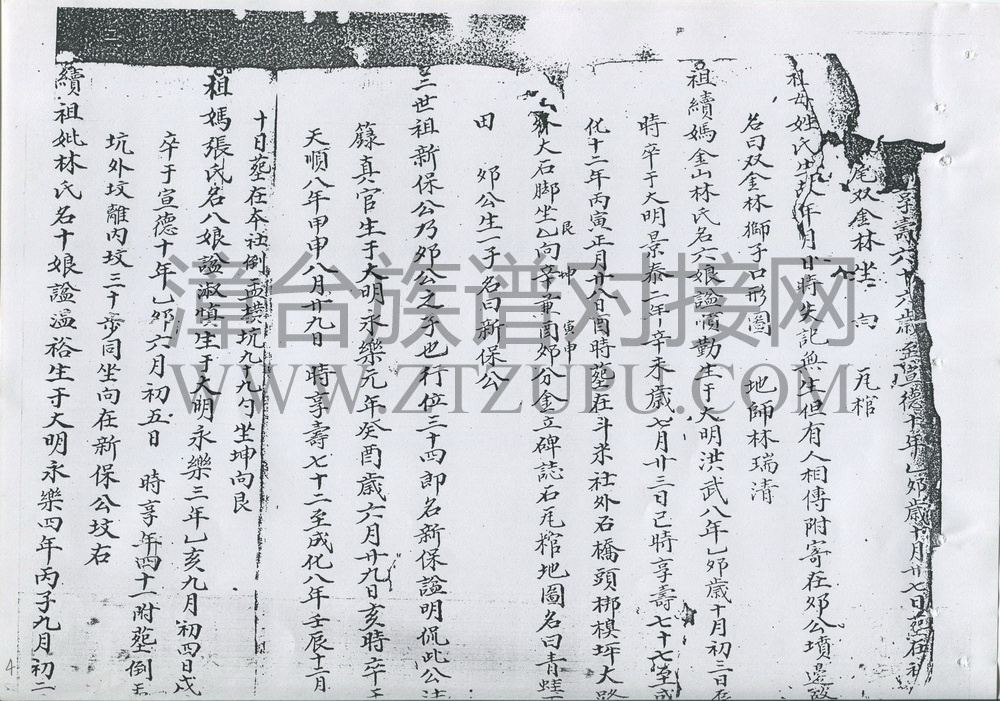 享壽六十六歲 至宣德十年乙夘歲十月廿七日𦵏在祖
尾双金林 坐 向 瓦棺
祖母姓氏生 年月日時失記無生但有人相傳附寄在夘公墳邊
名曰双金林獅子口形圖 地師林瑞清
祖續媽金山林氏名六娘諡順勤生于大明洪武八年乙夘歲十月初三日辰
時卒于大明景泰二年辛未歲七月廿三日已時享壽七十七至成
化十二年丙寅正月廿八日酉時𦵏在斗米社外石橋頭梆模坪大路
大石脚坐乙向辛兼酉夘分金立碑誌石瓦棺地圖名曰青蛙
艮 坤 寅申
田 夘公生一子名曰新保公
三世祖新保公乃夘公之子也行位三十四郎名新保諡明侃此公法
籙真官生于大明永樂元年癸酉歲六月廿九日亥時卒于
天順八年甲申八月廿九日 時享壽七十二至成化八年壬辰十二月
十日𦵏在本社倒盂橫坑九九勺坐坤向艮
祖媽張氏名八娘諡淑慎生于大明永樂三年乙亥九月初四日戌
卒于宣德十年乙夘六月初五日 時享年四十一附𦵏倒盂
坑外墳離內墳三十步同坐向在新保公墳右
續祖妣林氏名十娘諡溫裕生于大明永樂四年丙子九月初二
漳台族谱对接网
WWW.ZTZUPU.COM
4